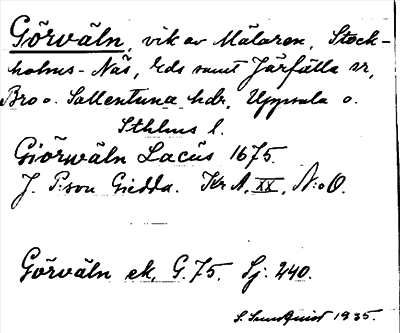 Görväln, vik av Mälaren, Stock-
holms-Näs, Eds samt Järfälla sr,
Bro o. Sollentuna hdr, Uppsala o.
Sthlms l.
Giörwäln Lacus 1675.
J. P:son Giedda. Kr A, XX, N:o O.
Görväln ek. G. 75. Sj. 240.
S. Sundquist 1935.